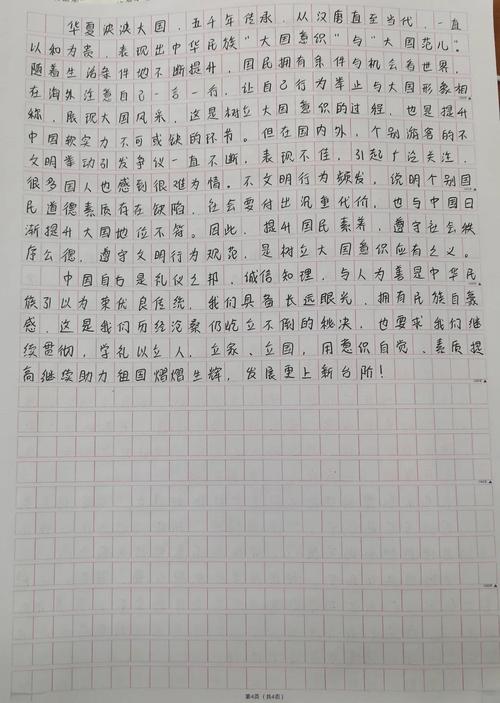 华夏泱泱大国，五千年传承，从汉唐直至当代，一直
以和为贵，表现出中华民族“大国意识”与“大国范儿”。
随着生活条件地不断提升，国民拥有条件与机会看世界，
在海外注意自己一言一行，让自己行为举止与大国形象相
称，展现大国风采，这是树立大国意识的过程，也是提升
中国软实力不可或缺的环节。但在国内外，个别游客的不
文明举动引发争议一直不断，表现不佳，引起广泛关注，
很多国人也感到很难为情。不文明行为频发，说明个别国
民道德素质存在缺陷，社会要付出沉重代价，也与中国日
渐提升大国地位不符。因此，提升国民素养，遵守社会秩
序公德，遵守文明行为规范，是树立大国意识应有之义。
中国自古是礼仪之邦，诚信知理，与人为善是中华民
族引以为荣优良传统，我们具备长远眼光，拥有民族自豪
感，这是我们历经沧桑仍屹立不倒的秘决，也要求我们继
续贯彻，学礼以立人、立家、立国，用意识自觉、素质提
高继续助力祖国熠熠生辉，发展更上新台阶！
第4页（共4页）